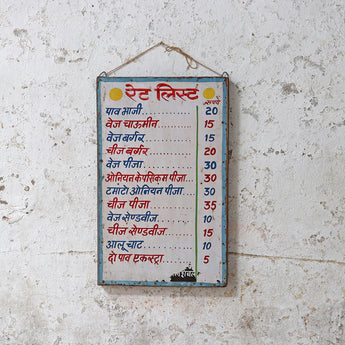 रेट लिस्ट
रुपये
पाव भाजी 20
वेज चाऊमीन 15
वेज बर्गर 15
चीज बर्गर 20
वेज पीजा 30
ओनियन केपसिकम पीजा 30
टमाटो ओनियन पीजा 30
चीज पीजा 35
वेज सेण्डवीज 10
चीज सेण्डवीज 15
आलू चाट 10
दो पाव एकस्ट्रा 5